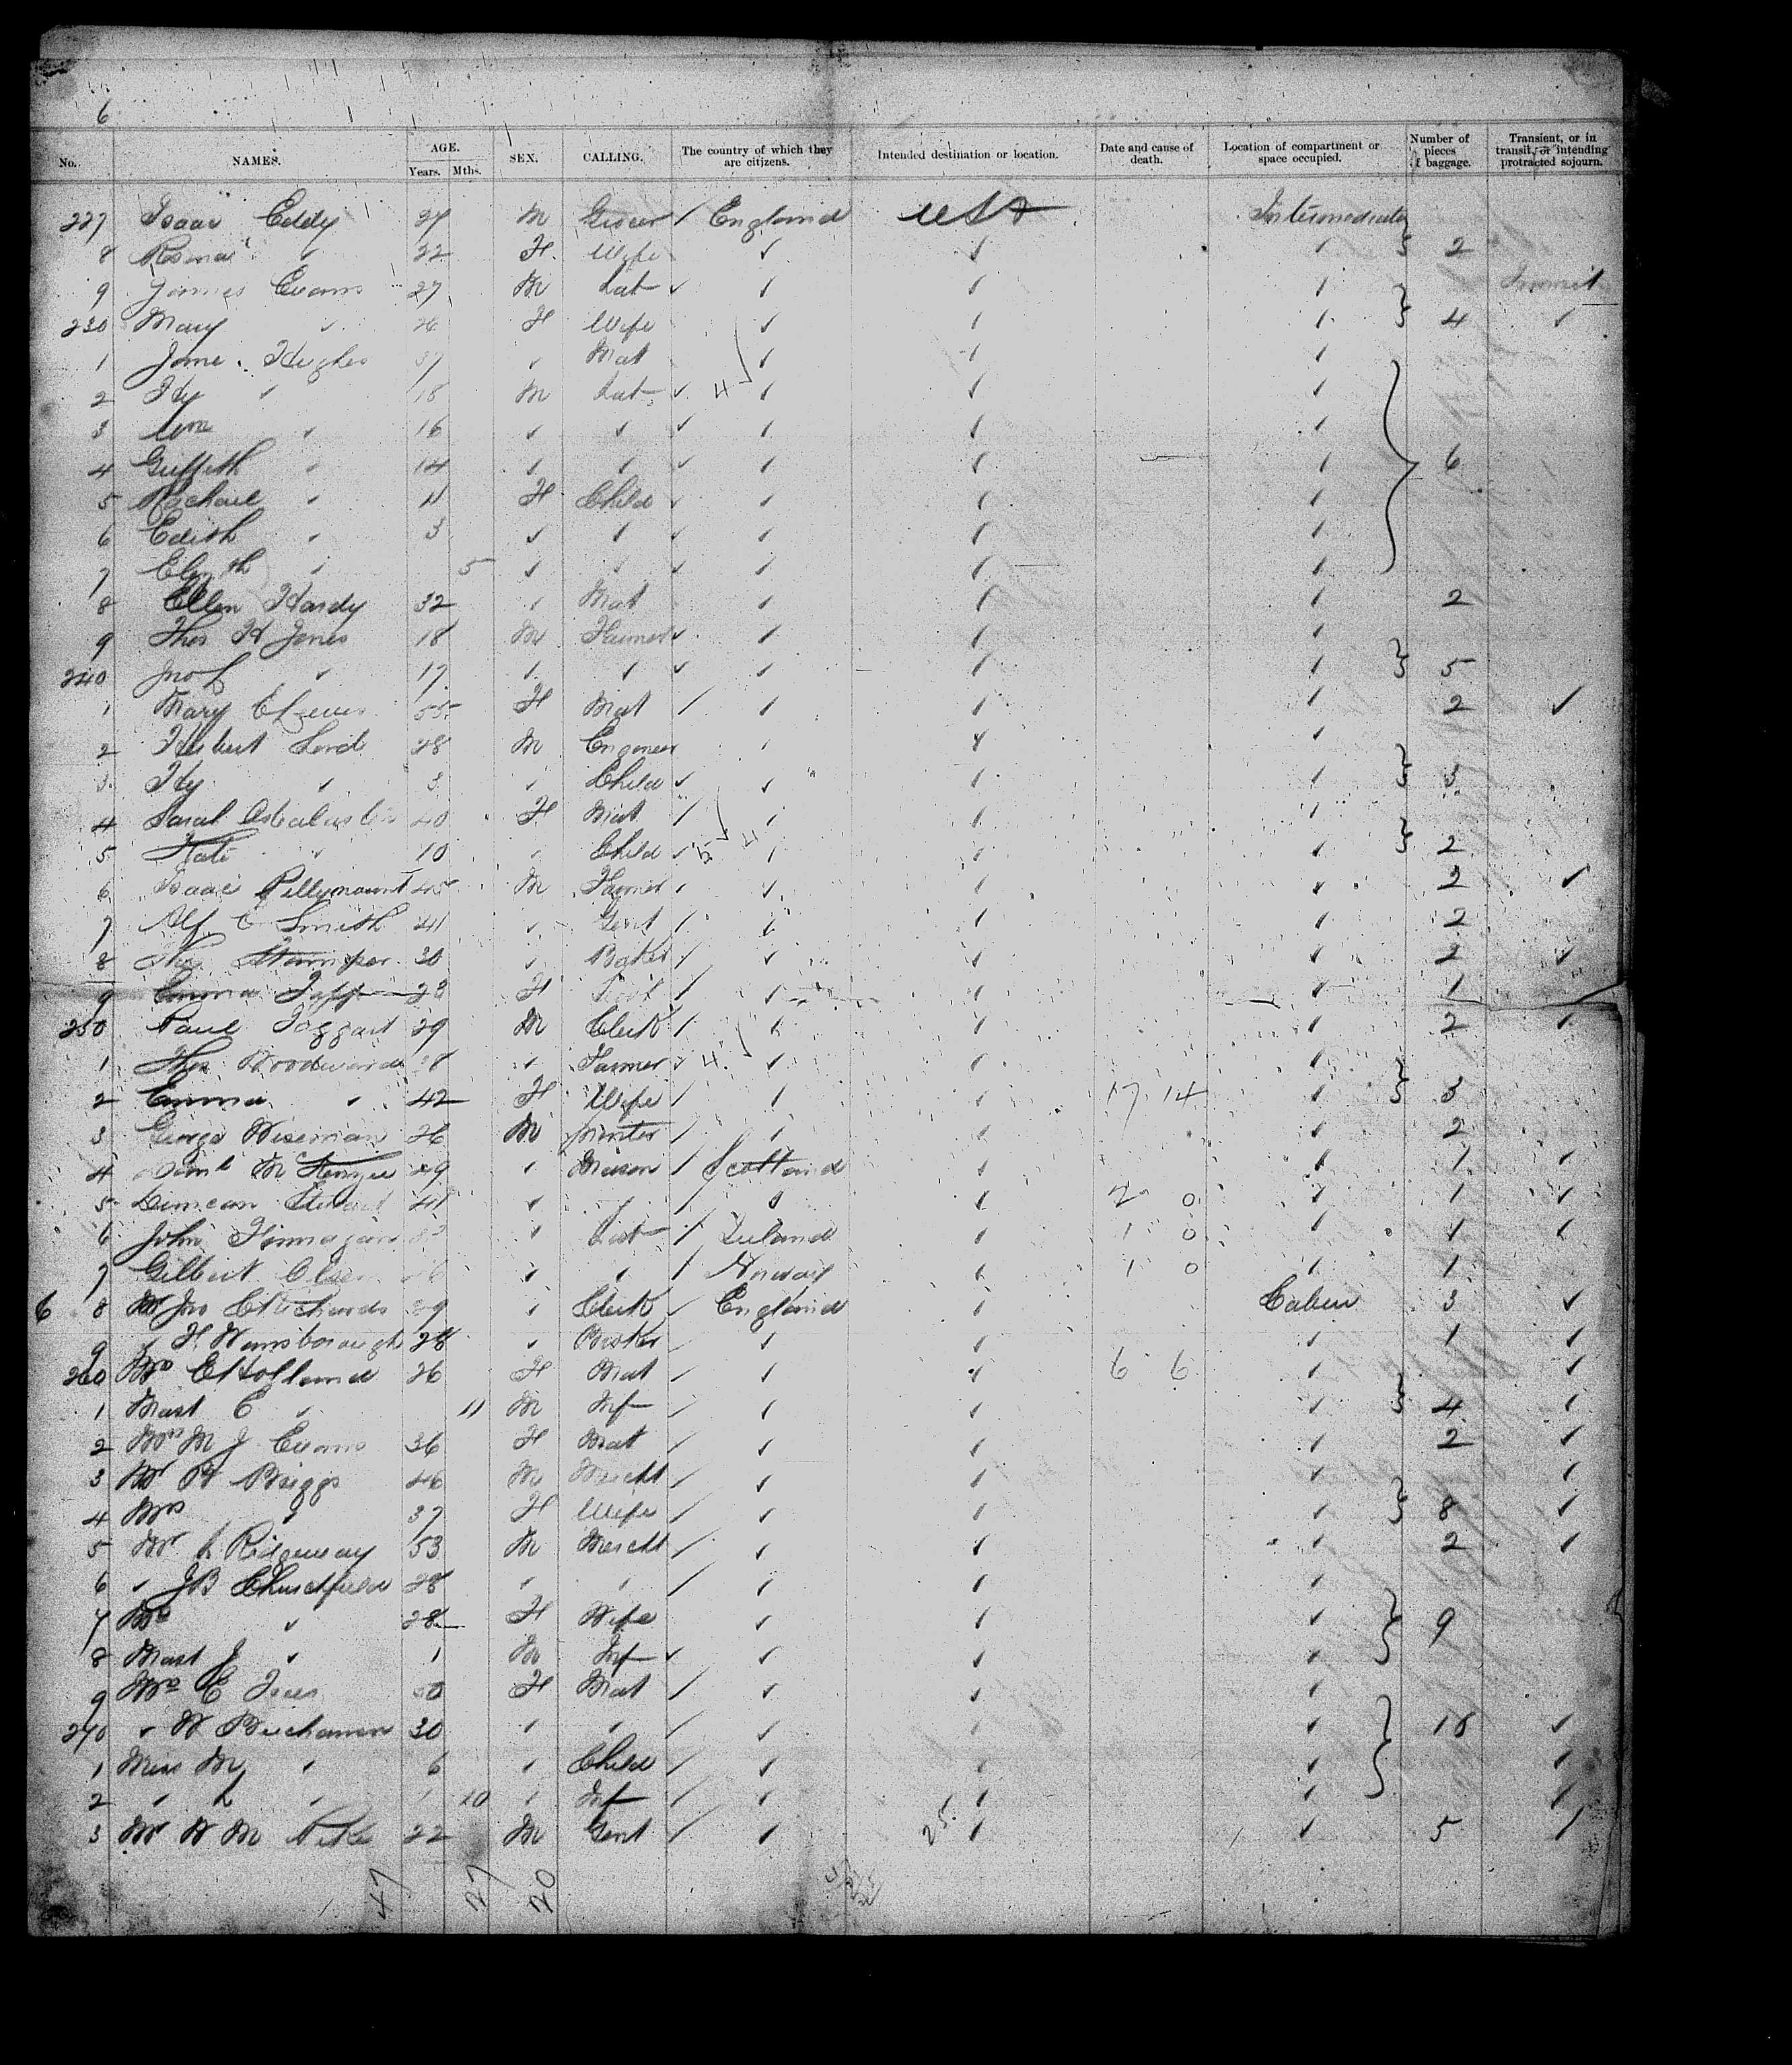 6
No. NAMES. AGE. Years. Mths. SEX. CALLING. The country of which they are citizens. Intended destination or location. Date and cause of death. Location of compartment or space occupied. Number of pieces of baggage. Transient, or in transit, or intending protracted sojourn.
227 Isaac Eddy 27 M Grocer / England USA Intermediate
8 Rosina ✓ 22 F. Wife ✓ ✓ ✓ } 2
9 James Evans 27 M Lab ✓ ✓ ✓ ✓ Transit
230 Mary ✓ 26 F Wife ✓ ✓ ✓ } 4 ✓
1 Jane Hughes 37 ✓ Mat ✓ ✓ ✓
2 Hy ✓ 18 M Lab ✓ 4 ✓ ✓ ✓
3 Wm ✓ 16 ✓ ✓ ✓ ✓ ✓ ✓
4 Griffith ✓ 14 ✓ ✓ ✓ ✓ ✓ ✓ } 6
5 Rachael ✓ 11 F Child ✓ ✓ ✓ ✓
6 Edith ✓ 3 ✓ ✓ ✓ ✓ ✓ ✓
7 Elizth ✓ 5 ✓ ✓ ✓ ✓ ✓ ✓
8 Ellen Hardy 32 ✓ Mat ✓ ✓ ✓ 2
9 Thos H Jones 18 M Farmer ✓ ✓ ✓ ✓
240 Jno ✓ 17 ✓ ✓ ✓ ✓ ✓ ✓ } 5
1 Mary 55 F Mat / ✓ ✓ ✓ 2 ✓
2 Herbert Lord 28 M Engineer ✓ ✓ ✓
3 Hy ✓ 3 ✓ Child ✓ ✓ ✓ ✓ } 3
4 Sarah 40 F Mat / ✓ ✓ ✓
5 Kate ✓ 10 ✓ Child ✓ 5 4 ✓ ✓ ✓ } 2
6 Isaac Pellymount 45 M Farmer ✓ ✓ ✓ ✓ 2 ✓
7 Alf C Smith 41 ✓ Gent / ✓ ✓ ✓ 2
8 Thos 30 ✓ Baker / ✓ ✓ ✓ 2 ✓
9 Emma 23 F / ✓ ✓ ✓ 1 /
250 Paul Taggart 29 M Clerk / ✓ ✓ ✓ 2 ✓
1 Thos Woodward 38 ✓ Farmer ✓ 4 ✓ ✓ ✓
2 Emma ✓ 42 F Wife / ✓ ✓ 17 14 ✓ } 3
3 George Wiseman 26 M Printer / ✓ ✓ ✓ 2
4 Saml McKenzie 29 ✓ Mason / Scotland ✓ ✓ 1 ✓
5 Duncan Stewart 41 ✓ ✓ / ✓ ✓ 2 0 ✓ 1 ✓
6 John Finnegan ✓ Lab / Ireland ✓ 1 0 ✓ 1 ✓
7 Gilbert Olsen ✓ ✓ / Norway ✓ 1 0 ✓ 1
6 8 Mr Jno C Richards 29 ✓ Clerk ✓ England ✓ Cabin 3 ✓
9 ✓ H Wansborough 28 ✓ Broker ✓ ✓ ✓ 1 ✓
260 Mrs E Holland 26 F Mat / ✓ ✓ 6 6 ✓ ✓
1 Mast E ✓ 11 M Inf / ✓ ✓ ✓ } 4 ✓
2 Mrs M J Evans 36 F Mat / ✓ ✓ ✓ 2 ✓
3 Mr R Briggs 46 M Mercht / ✓ ✓ ✓ ✓
4 Mrs ✓ 37 F Wife / ✓ ✓ ✓ } 8 ✓
5 Mr Ridgeway 53 M Mercht / ✓ ✓ ✓ 2 ✓
6 ✓ JB Churchfield 28 ✓ ✓ / ✓ ✓ ✓
7 Mrs ✓ 28 F Wife ✓ ✓ ✓ } 9
8 Mast J ✓ 1 M Inf ✓ ✓ ✓ ✓
9 Mrs E F Mat / ✓ ✓ ✓
270 ✓ W Buchanan 30 ✓ ✓ / ✓ ✓ ✓ } 18 ✓
1 Miss M ✓ 6 ✓ Child / ✓ ✓ ✓ ✓
2 ✓ L ✓ 10 ✓ Inf / ✓ ✓ ✓ ✓
3 Mr W M Pike 22 M Gent / ✓ 25 ✓ ✓ 5 /
47 27 20